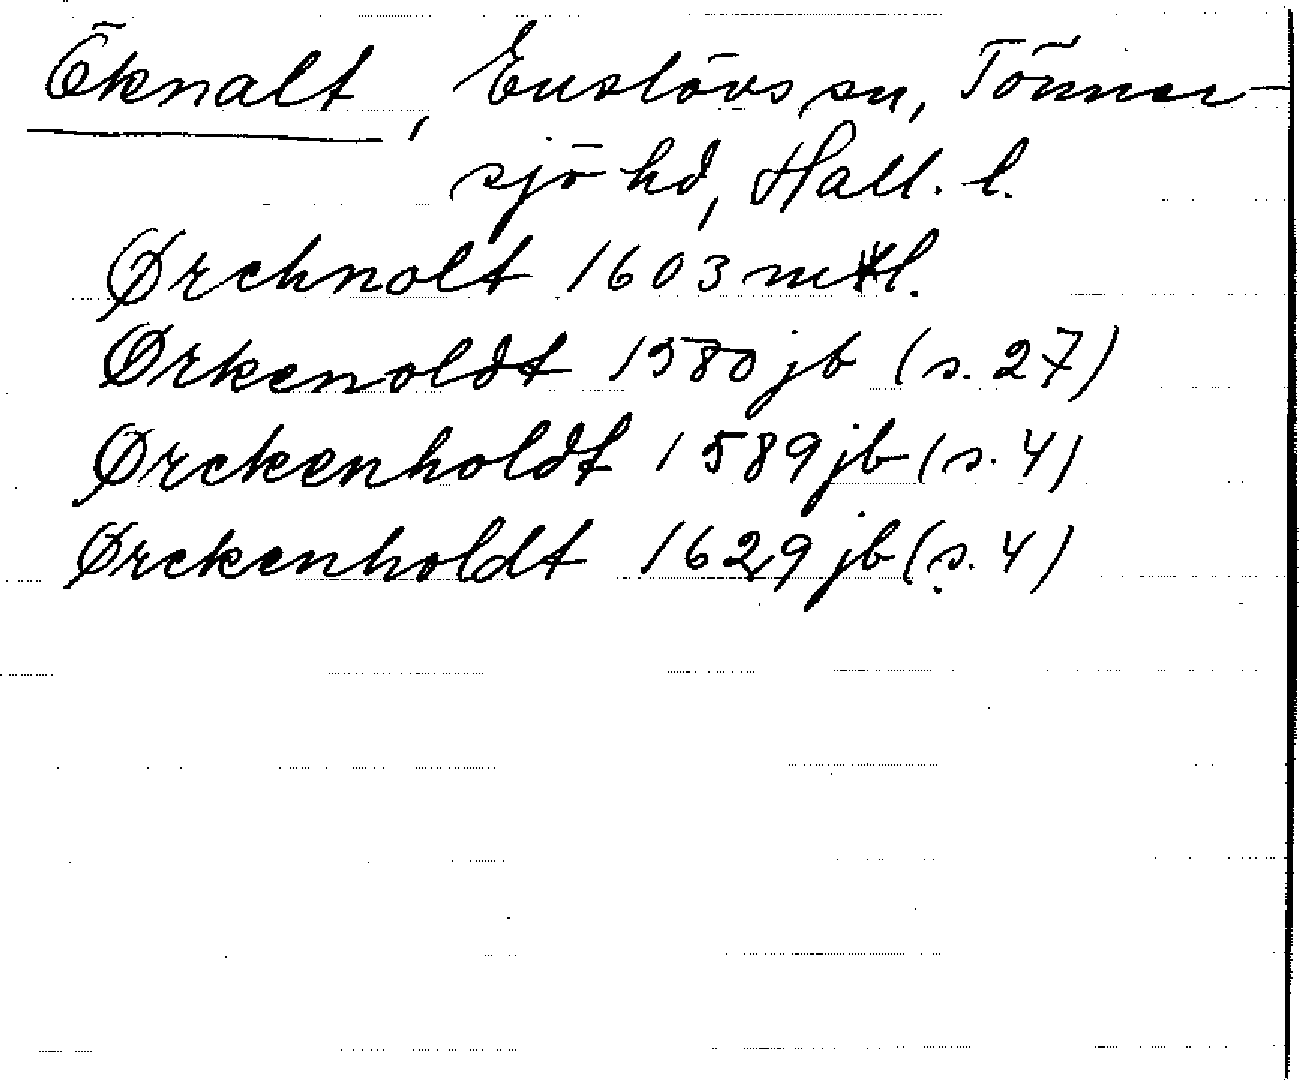 Öknalt, Enslövs sn, Tönner-
sjö hd, Hall. l.
Ørchnolt 1603 mtl.
Ørkenoldt 1580 jb (s. 27)
Ørckenholdt 1589 jb (s. 4)
Ørckenholdt 1629 jb (s. 4)